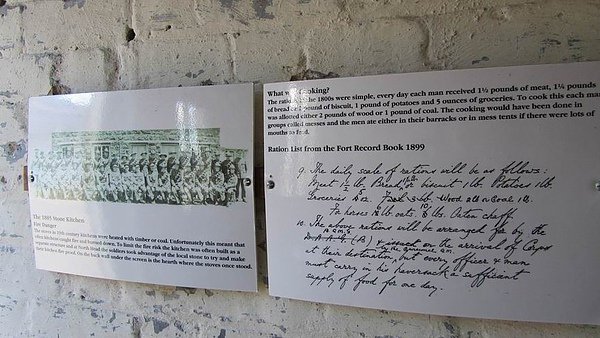 The 1885 Stone Kitchen
Fire Danger
The stoves in 19th century kitchens were heated with timber or coal. Unfortunately this meant that
often kitchens caught fire and burned down. To limit the fire risk the kitchen was often built as a
separate structure and at North Head the soldiers took advantage of the local stone to try and make
their kitchen fire proof. On the back wall under the screen is the hearth where the stoves once stood.
What was Cooking?
The rations in the 1800s were simple, every day each man received 1½ pounds of meat, 1¼ pounds
of bread or 1 pound of biscuit, 1 pound of potatoes and 5 ounces of groceries. To cook this each man
was allotted either 2 pounds of wood or 1 pound of coal. The cooking would have been done in
groups called messes and the men ate either in their barracks or in mess tents if there were lots of
mouths to feed.
Ration List from the Fort Record Book 1899
9. The daily scale of rations will be as follows:
Meat 1½ lb. Bread 1¼ lb or biscuit 1 lb. Potatoes 1 lb.
Groceries 5 oz. Wood 2 lb or Coal 1 lb.
For horses lb oats. lb. chaff
10. The above rations will be arranged for by the
on the arrival of Corps
at their destination, but every officer & man
must carry in his haversack a sufficient
supply of food for one day.